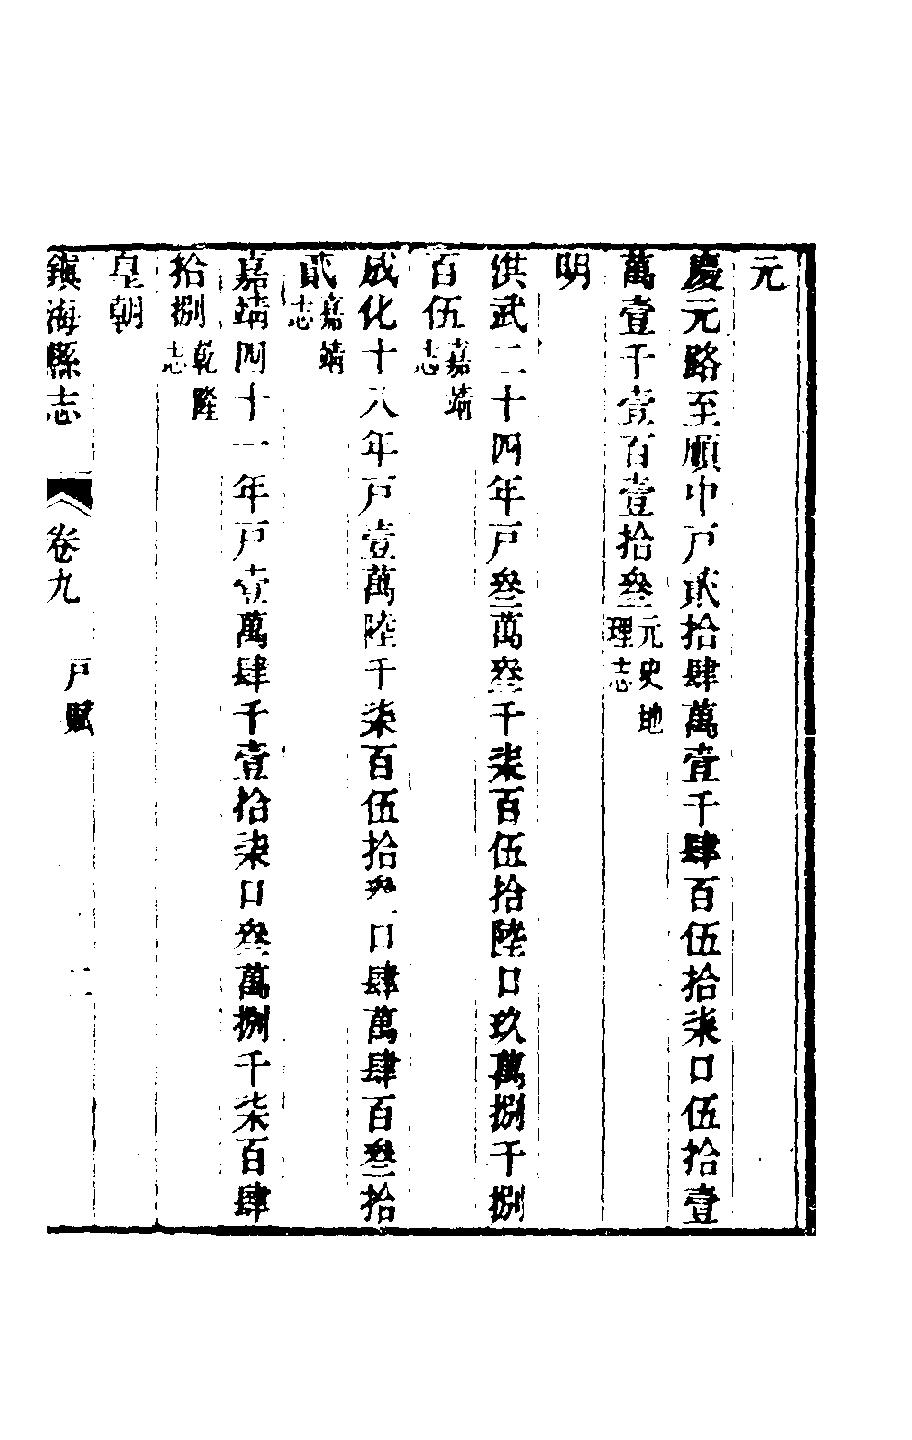 元
慶元路至順中戸貳拾肆萬壹千肆百伍拾柒口伍拾壹
萬壹千壹百壹拾叄元史地理志
明
洪武二十四年戸叄萬叄千柒百伍拾陸口玖萬捌千捌
百伍嘉靖志
成化十八年戸壹萬陸千柒百伍拾叄口肆萬肆百叄拾
貳嘉靖志
嘉靖四十一年戸壹萬肆千壹拾柒口叄萬捌千柒百肆
拾捌乾隆志
皇朝
鎮海縣志 卷九 戸賦 一